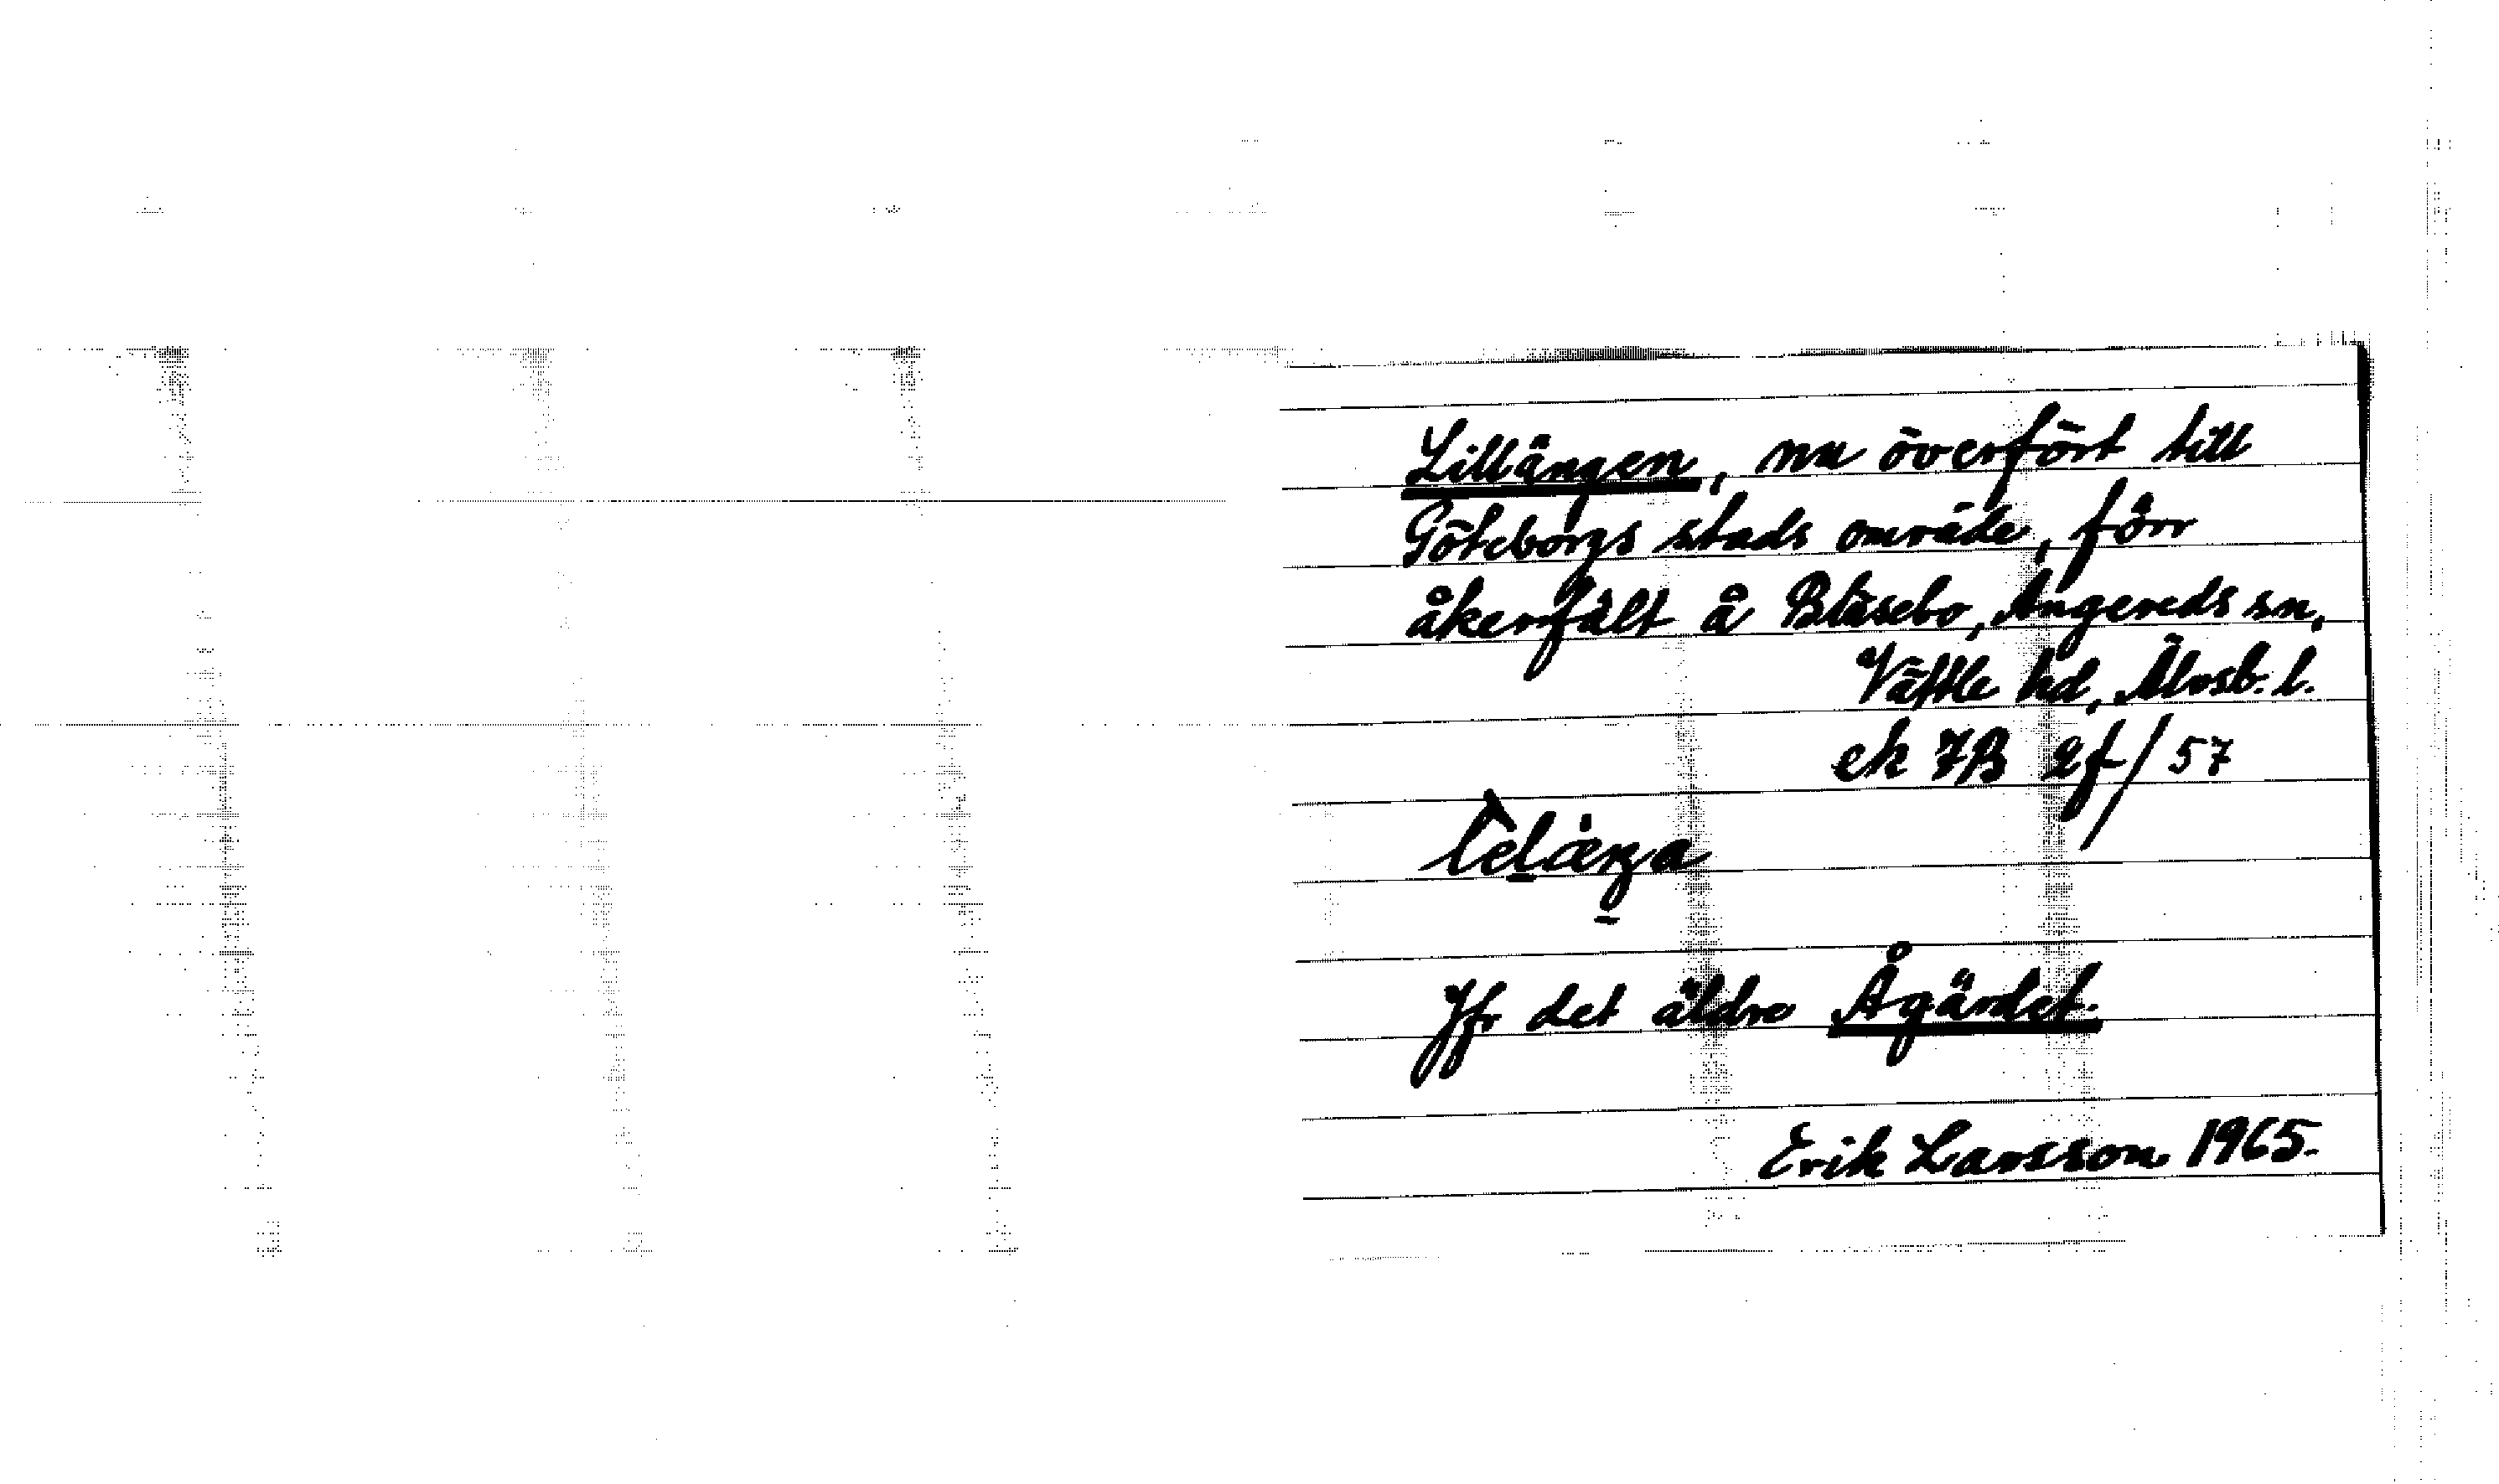 Lillängen, nu överfört till
Göteborgs stads område, förr
åkerfält å Blåsebo, Angereds sn,
Vättle hd, Älvsb. l.
ek 7B 2f/57
Jfr det äldre Ågärdet.
Erik Larsson 1965.